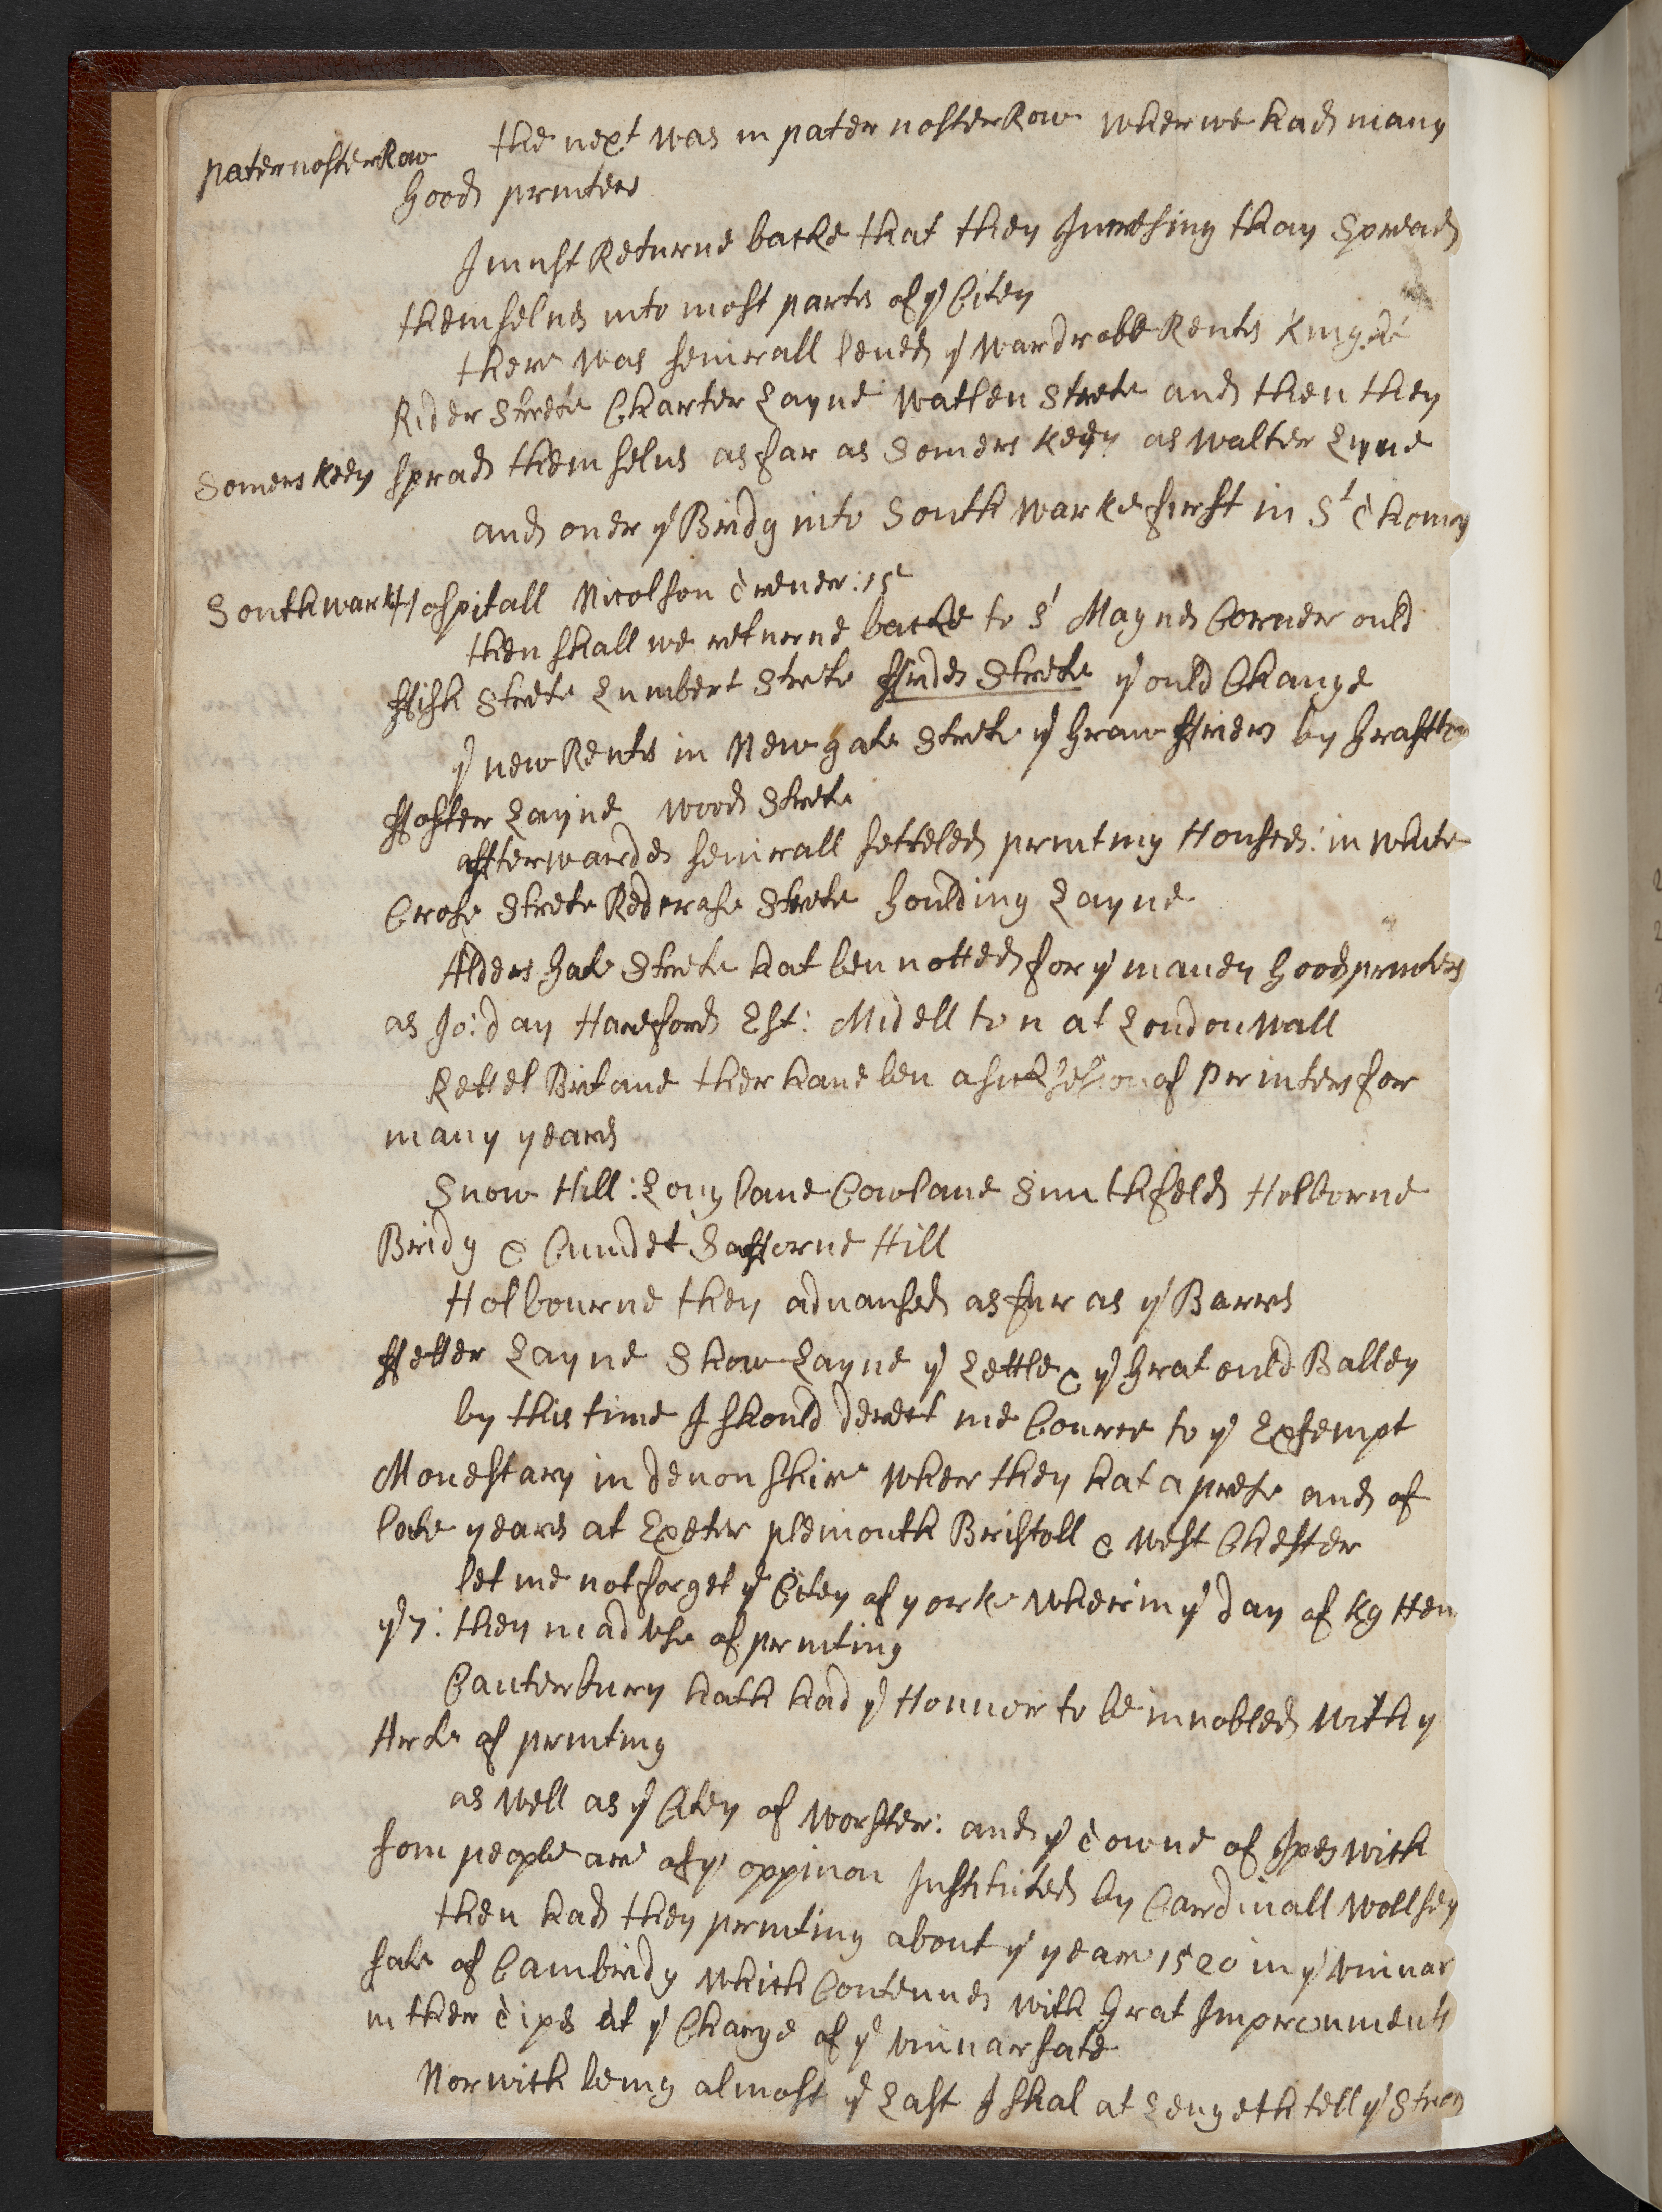 paternosterRow
the next was in pater nosterRow wher we had many
Good printers
I must Returne backe that they Incresing thay Spread
themselves into most parts of ye Citey
there was severall leved ye Wardrobe Rents Knigte
Rider Strete Charter Layne Watlen Strete and then they
Somers Keey
sprad themselves as far as Somers Keey as Walter Lyne
and over ye Bridg into South Warke first in St Thomas
Southwark
Hospitall Nicolson Trever: 15
then shall we returne backe to St Magnes Corner ould
ffish Strete Lumbert Strete ffrides Strete ye ould Change
ye new Rents in New gate Strete ye Graue ffriers by Grafton
ffoster Layne Wood Strete
affterwardes severall setteled printing Houses: in White
Crose Strete Redcrose Strete Goulding Layne
Alders Gate Strete hat ben notted for ye maney Good printers
as Jo: day Hareford Est: Midellton at London Wall
Lettel Britane ther have ben a succesion of Printers for
many yeares
Snow Hill: Long lane Cowlane Smithfeld Holborne
Bridg & Cundet Safforne Hill
Holbourne they advansed as fur as ye Barres
ffetter Layne Show Layne ye Lettle & ye Grat ould Balley
by this time I should derect me Cource to ye Exsempt
Monestary in devonshire wher they hat a prese and of
late yeares at Exeter plemouth Bristoll & West Chester
let me not forget ye Citey of yorke wher in ye day of Kg Hen
ye 7: they mad use of printing
Canterbury hath had ye Honnor to be innobled with ye
Arte of printing
as well as ye Citey of Worster: and ye towne of Ipeswith
som people are of ye oppinon Instituted by Cardinall Wollsey
then had they printing about ye yeare 1520 in ye Univar
sate of Cambridg which Contenues with Grat Improvements
in ther Tipes at ye Charge of ye Univarsate
Norwich being almost ye Last I shal at Lengeth tell ye